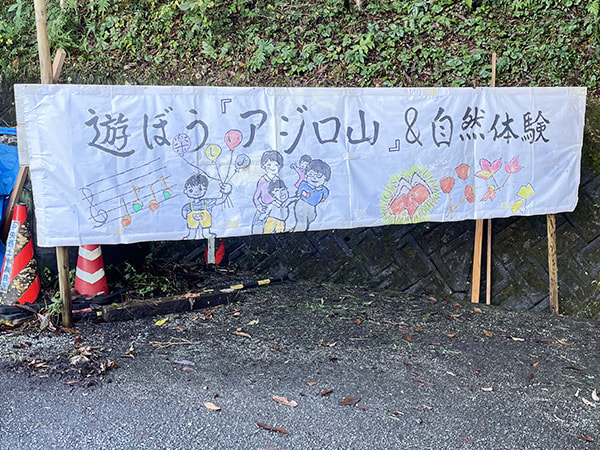 遊ぼう『アジロ山』&自然体験